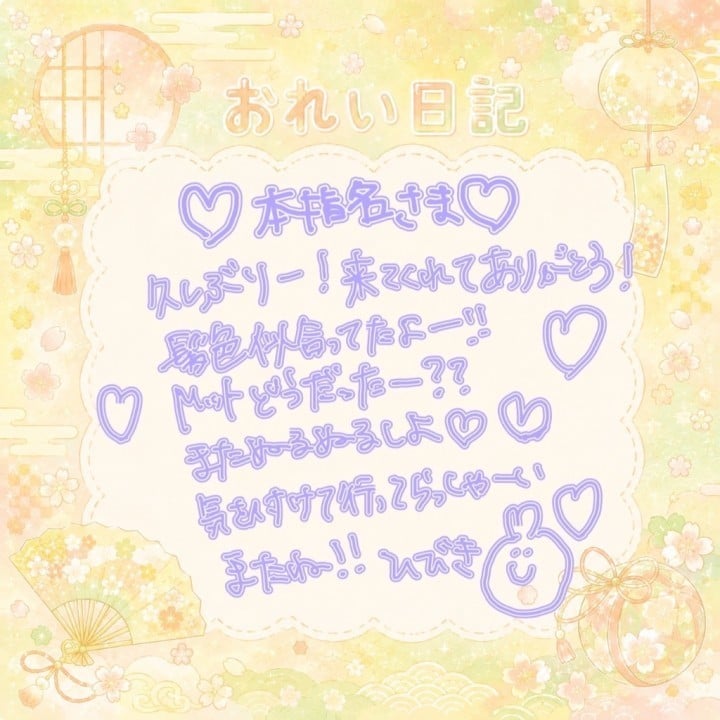 おれい日記
♡本指名さま♡
久しぶりー！来てくれてありがとう！
髪色似合ってたよー!!
Mットどうだったー??
またぬるぬるしよ♡
気をつけて行ってらっしゃーい
またね!! ひびき